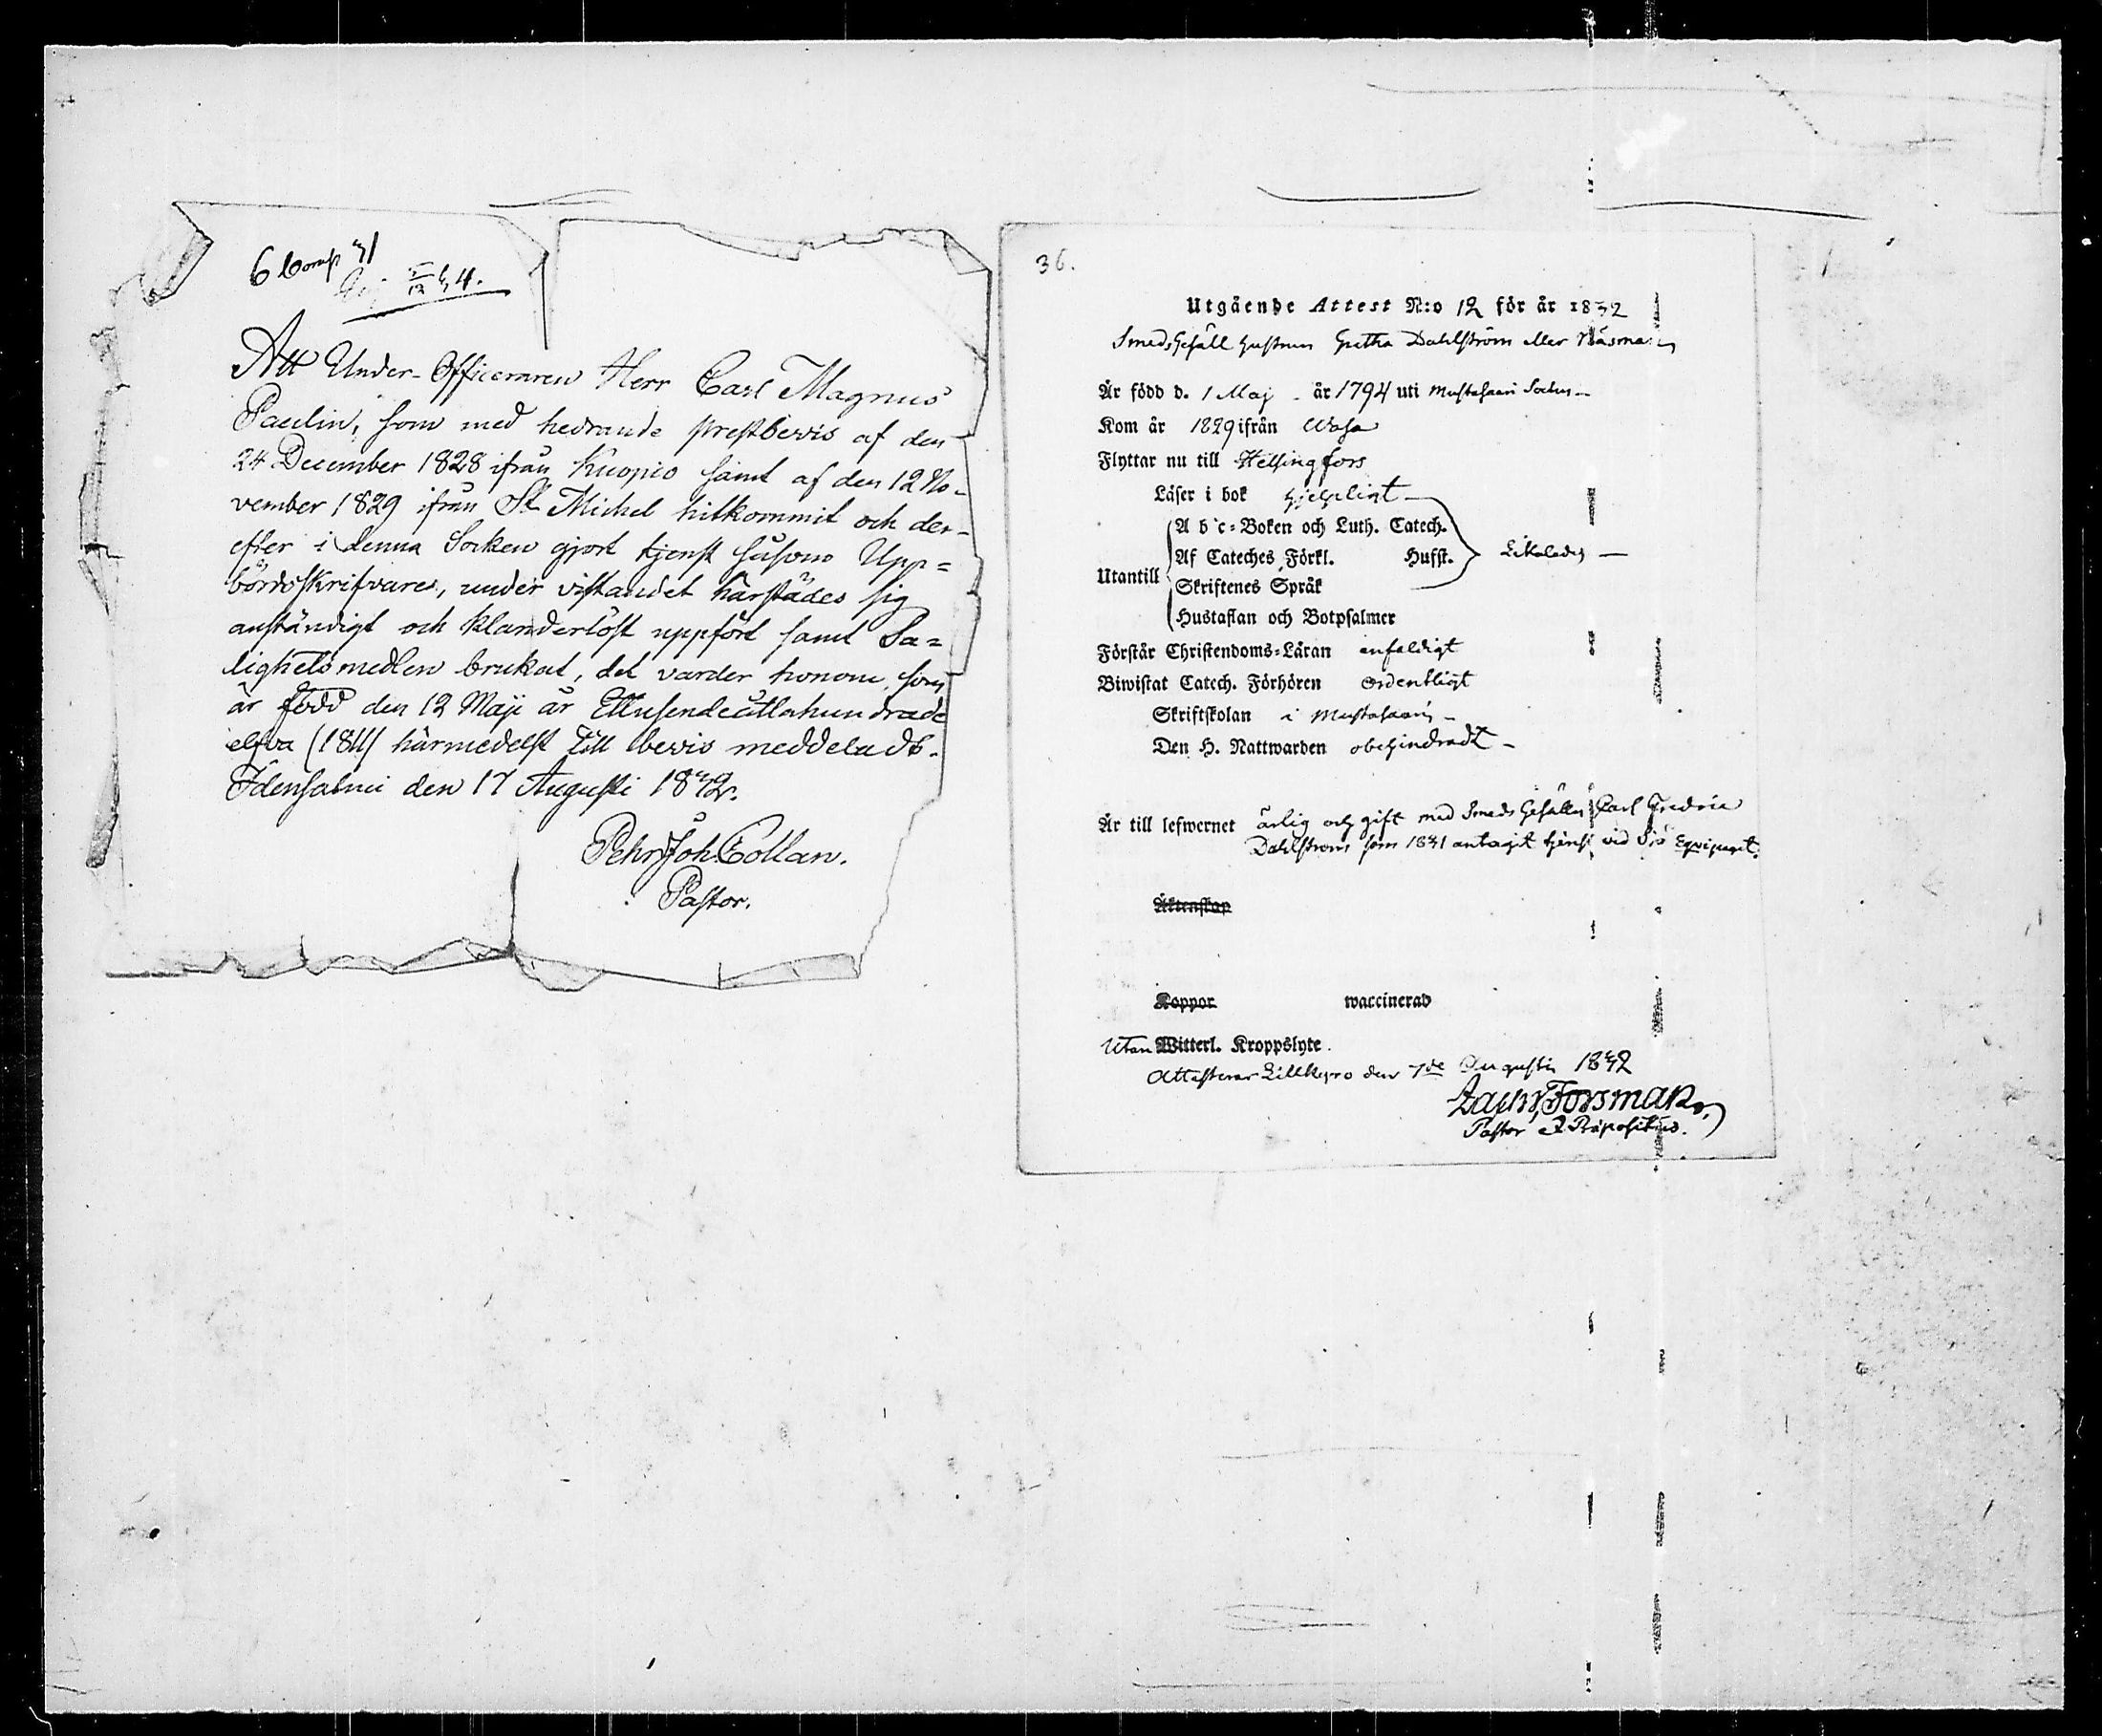 6 Comp 31
5/12 34.
Att Under-Officeraren Herr Carl Magnus
Paulin, som med hedrande prestbevis af den
24 December 1828 ifrån Kuopio samt af den 12 No-
vember 1829 ifrån St Michel hitkommit och der-
efter i denna Socken gjort tjenst såsom Upp=
bördsskrifvare, under vistandet härstädes sig
anständigt och klanderlöst uppfört samt Sa=
lighetsmedlen brukat, det varder honom, som
är född den 12 Maji år Ettusendeåttahundrade
elfva (1811) härmedelst till bevis meddeladt.
Idensalmi den 17 Augusti 1832.
Pehr Joh. Collan.
Pastor.
36.
Utgående Attest N:o 12 för år 1832
Smeds Gesäll hustrun Gretha Dahlström eller Näsman
Är född d. 1 Maj år 1794 uti Mustasaari Socken
Kom år 1829 ifrån Wasa
Flyttar nu till Helsingfors
Läser i bok hjelpligt
Utantill
A b c=Boken och Luth. Catech.
Af Cateches Förkl. Hufst. Likaledes
Skriftenes Språk
Hustaflan och Botpsalmer
Förstår Christendoms=Läran enfaldigt
Biwistat Catech. Förhören ordentligt
Skriftskolan i Mustasaari
Den H. Nattwarden obehindradt
Är till lefwernet ärlig och gift med Smeds Gesällen Carl Fredric
Dahlström som 1831 antagit tjenst vid Sjö Equipaget.
Äktenskap
Koppor waccinerad
Utan Witterl. Kroppslyte.
Attesterar Lillkyro den 7de Augusti 1832
Zachr. Forsman
Pastor & Präpositus.